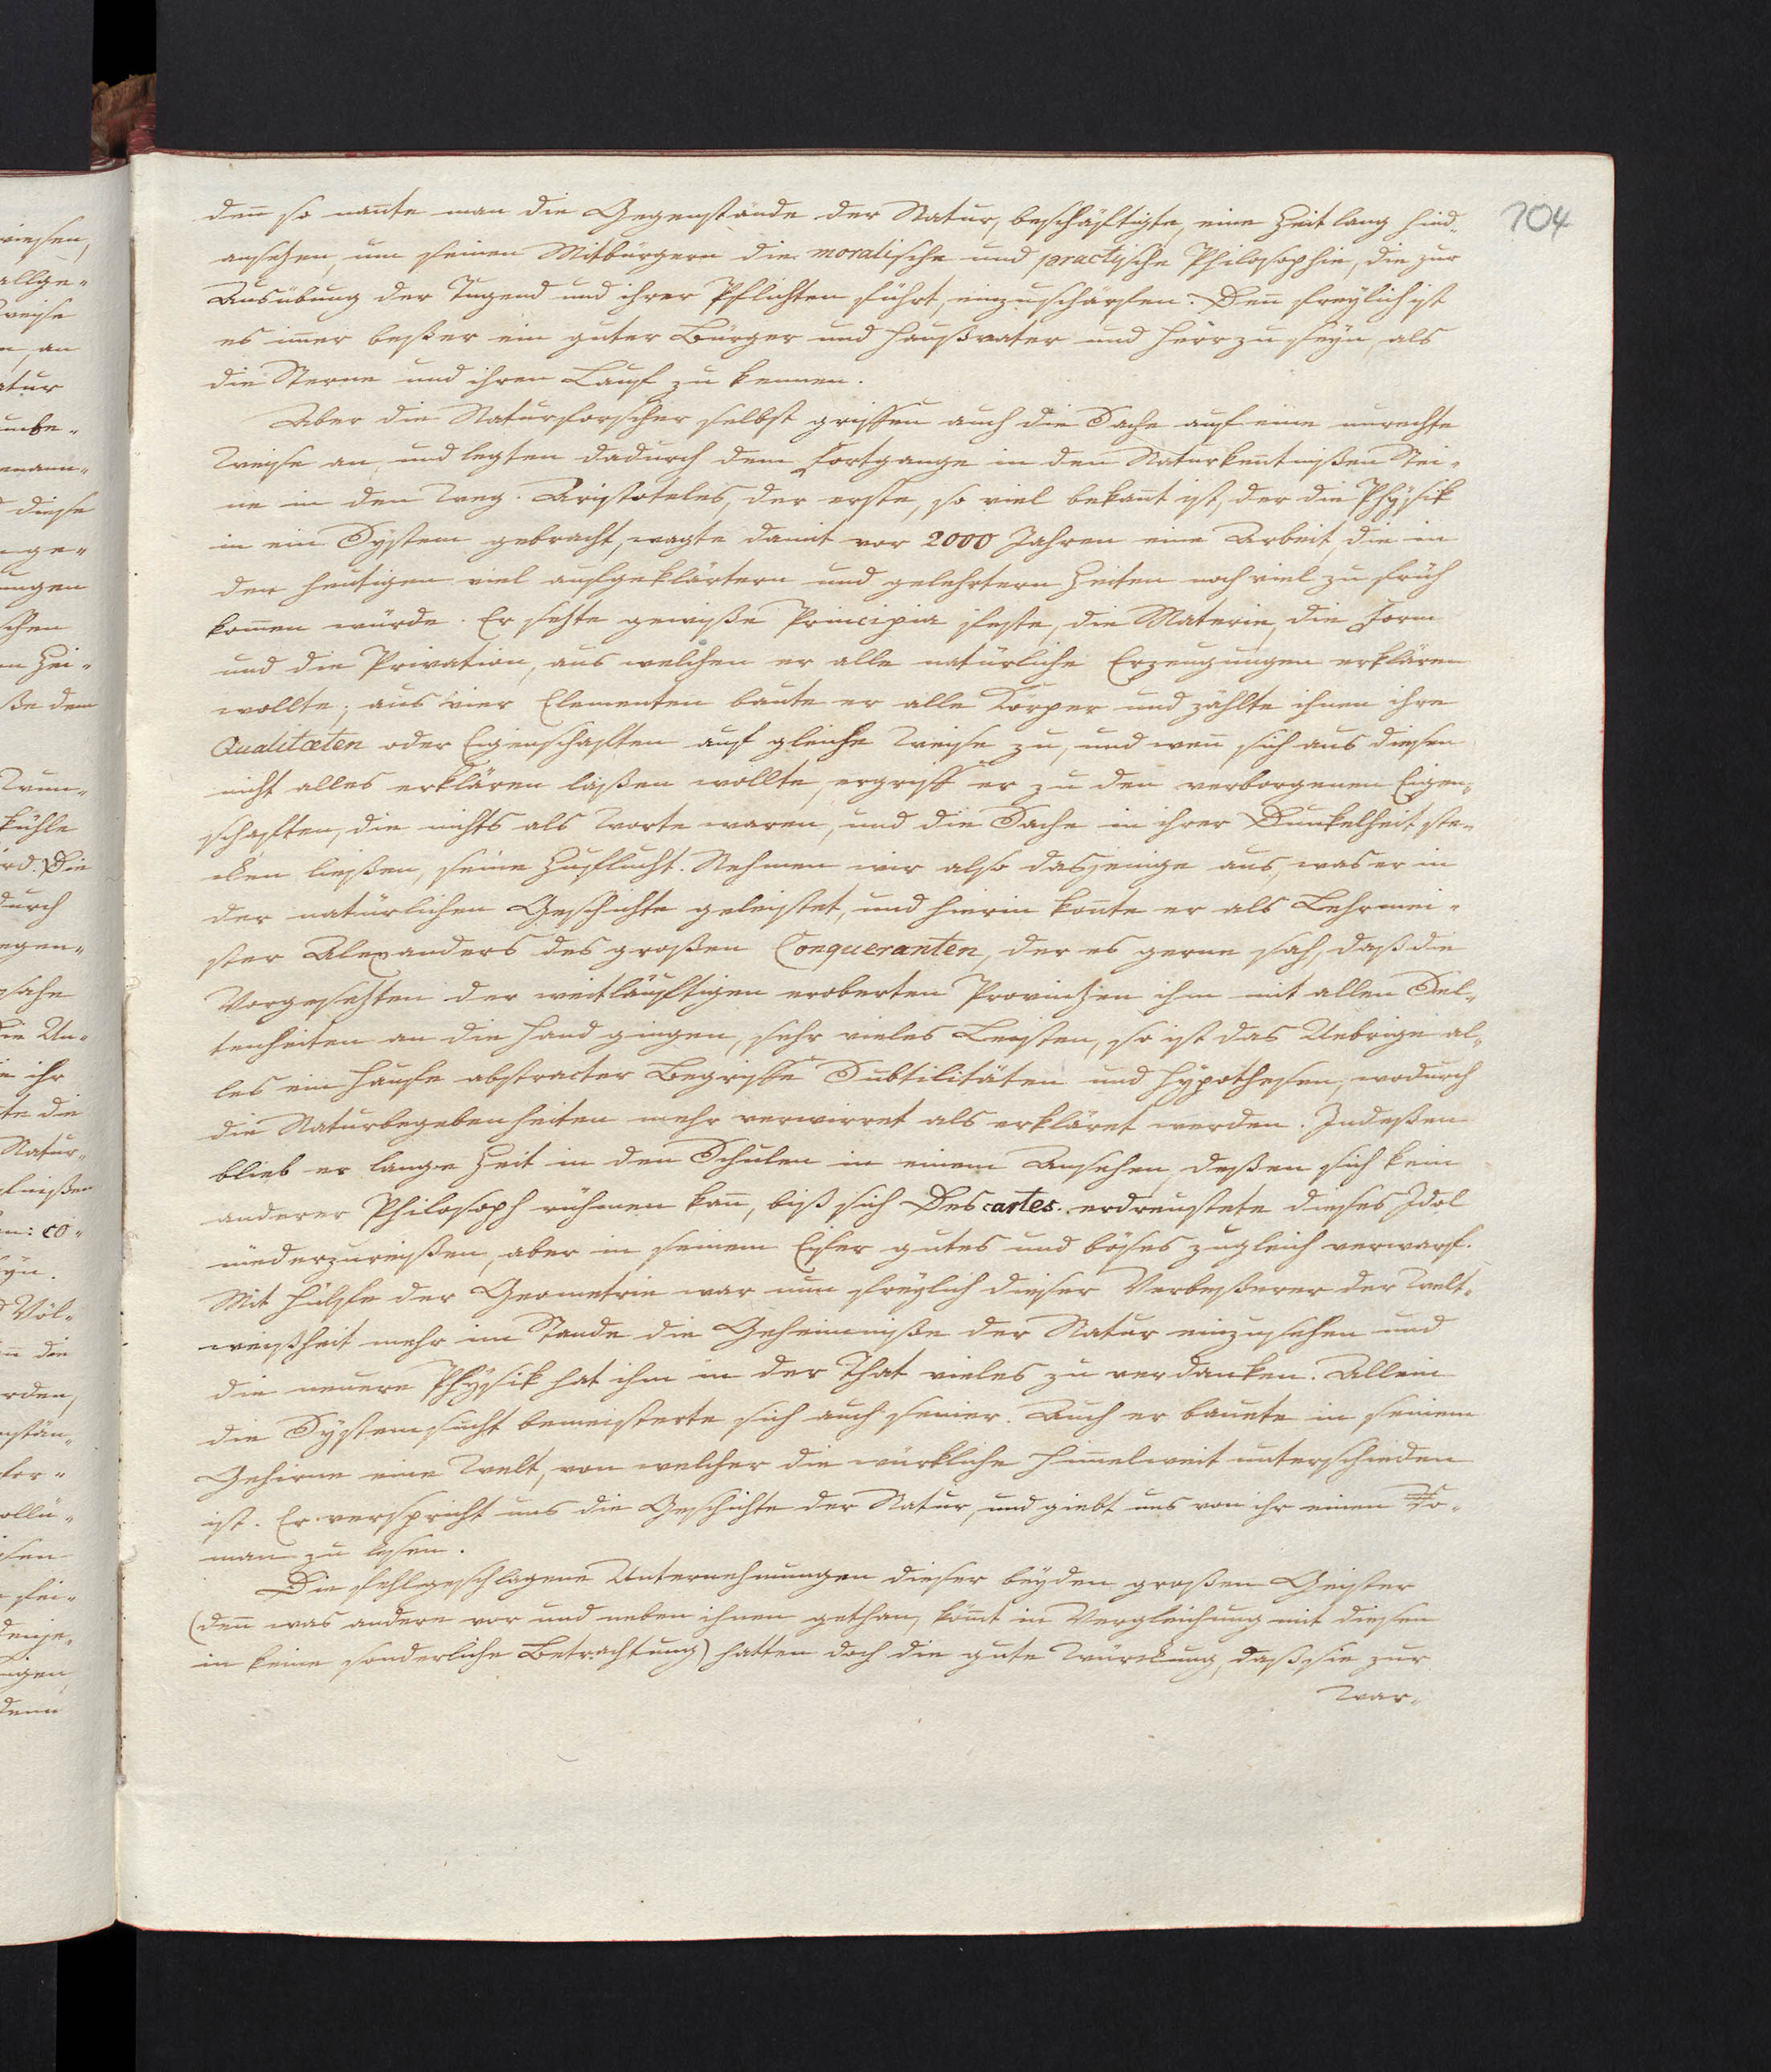 704
deñ so nañte man die Gegenstände der Natur, beschäftigte, eine Zeit lang hind-
ansetzen, um seinen Mitbürgern die moralische und practische Philosophie, die zur
Ausübung der Tugend und ihrer Pflichten führt, einzuschärfen. Deñ freylich ist
es im̃er beßer ein guter Bürger und Haußvater und Herr zu seyn, als
die Sterne und ihren Lauf zu kennen.
Aber die Naturforscher selbst griffen auch die Sache auf eine unrechte
Weise an, und legten dadurch dem Fortgange in den Naturkeñtnißen Stei-
ne in den Weg. Aristoteles, der erste, so viel bekañt ist, der die Physik
in ein System gebracht, wagte damit vor 2000 Jahren eine Arbeit, die in
den heutigen viel aufgeklärtern und gelehrtern Zeiten noch viel zu früh
kom̃en würde. Er setzte gewiße Principia feste, die Materie, die Form
und die Privation, aus welchen er alle natürliche Erzeugungen erklären
wollte; aus vier Elementen baute er alle Körper und zählte ihnen ihre
Qualitæten oder Eigenschafften auf gleiche Weise zu, und weñ sich aus diesen
nicht alles erklären laßen wollte, ergriff er zu den verborgenen Eigen-
schafften, die nichts als Worte waren, und die Sache in ihrer Dunkelheit ste-
cken ließen, seine Zuflucht. Nehmen wir also dasjenige aus, was er in
der natürlichen Geschichte geleistet, und hierin koñte er als Lehrmei-
ster Alexanders des großen Conqueranten, der es gerne sah, daß die
Vorgesetzten der weitläufftigen eroberten Provintzen ihm mit allen Sel-
tenheiten an die Hand gingen, sehr vieles Leisten, so ist das Uebrige al-
les ein Haufe abstracter Begriffe Subtilitäten und Hypothesen, wodurch
die Naturbegebenheiten mehr verwirret als erkläret werden. Indeßen
blieb er lange Zeit in den Schulen in einem Ansehen, deßen sich kein
anderer Philosoph rühmen kañ, biß sich Des cartes erdreustete dieses Idol
niederzureißen, aber in seinem Eifer gutes und böses zugleich verwarf.
Mit Hülfe der Geometrie war nun freylich dieser Verbeßerer der Welt-
weißheit mehr im Stande die Geheimniße der Natur einzusehen und
die neuere Physik hat ihm in der That vieles zu verdanken. Allein
die Systemsucht bemeisterte sich auch seiner. Auch er bauete in seinem
Gehirne eine Welt, von welcher die würkliche Him̃elweit unterschieden
ist. Er verspricht uns die Geschichte der Natur, und giebt uns von ihr einen Ro-
man zu lesen.
Die fehlgeschlagene Unternehmungen dieser beyden großen Geister
(deñ was andere vor und neben ihnen gethan, köm̃t in Vergleichung mit diesen
in keine sonderliche Betrachtung) hatten doch die gute Würckung, daß sie zur
War-